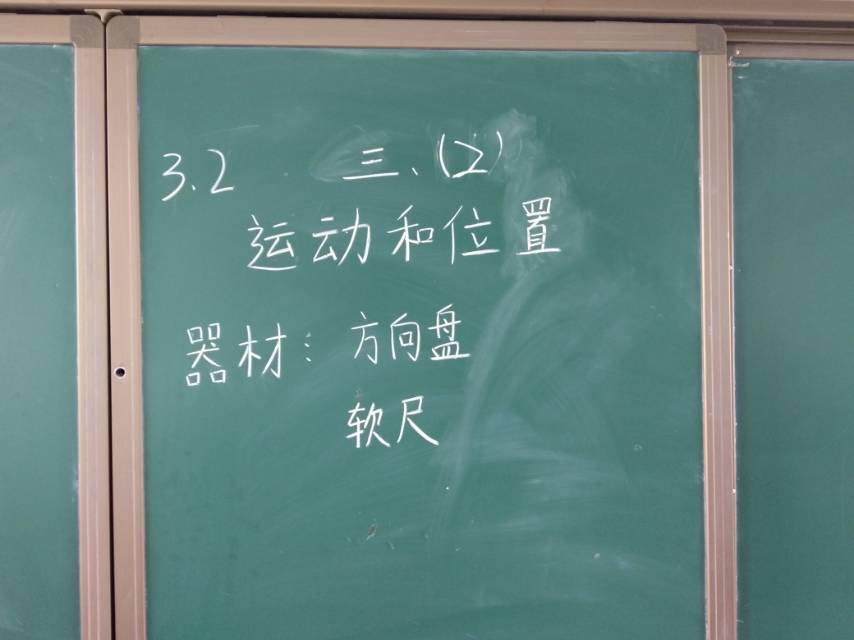 3.2 三、(2)
运动和位置
器材：方向盘
软尺